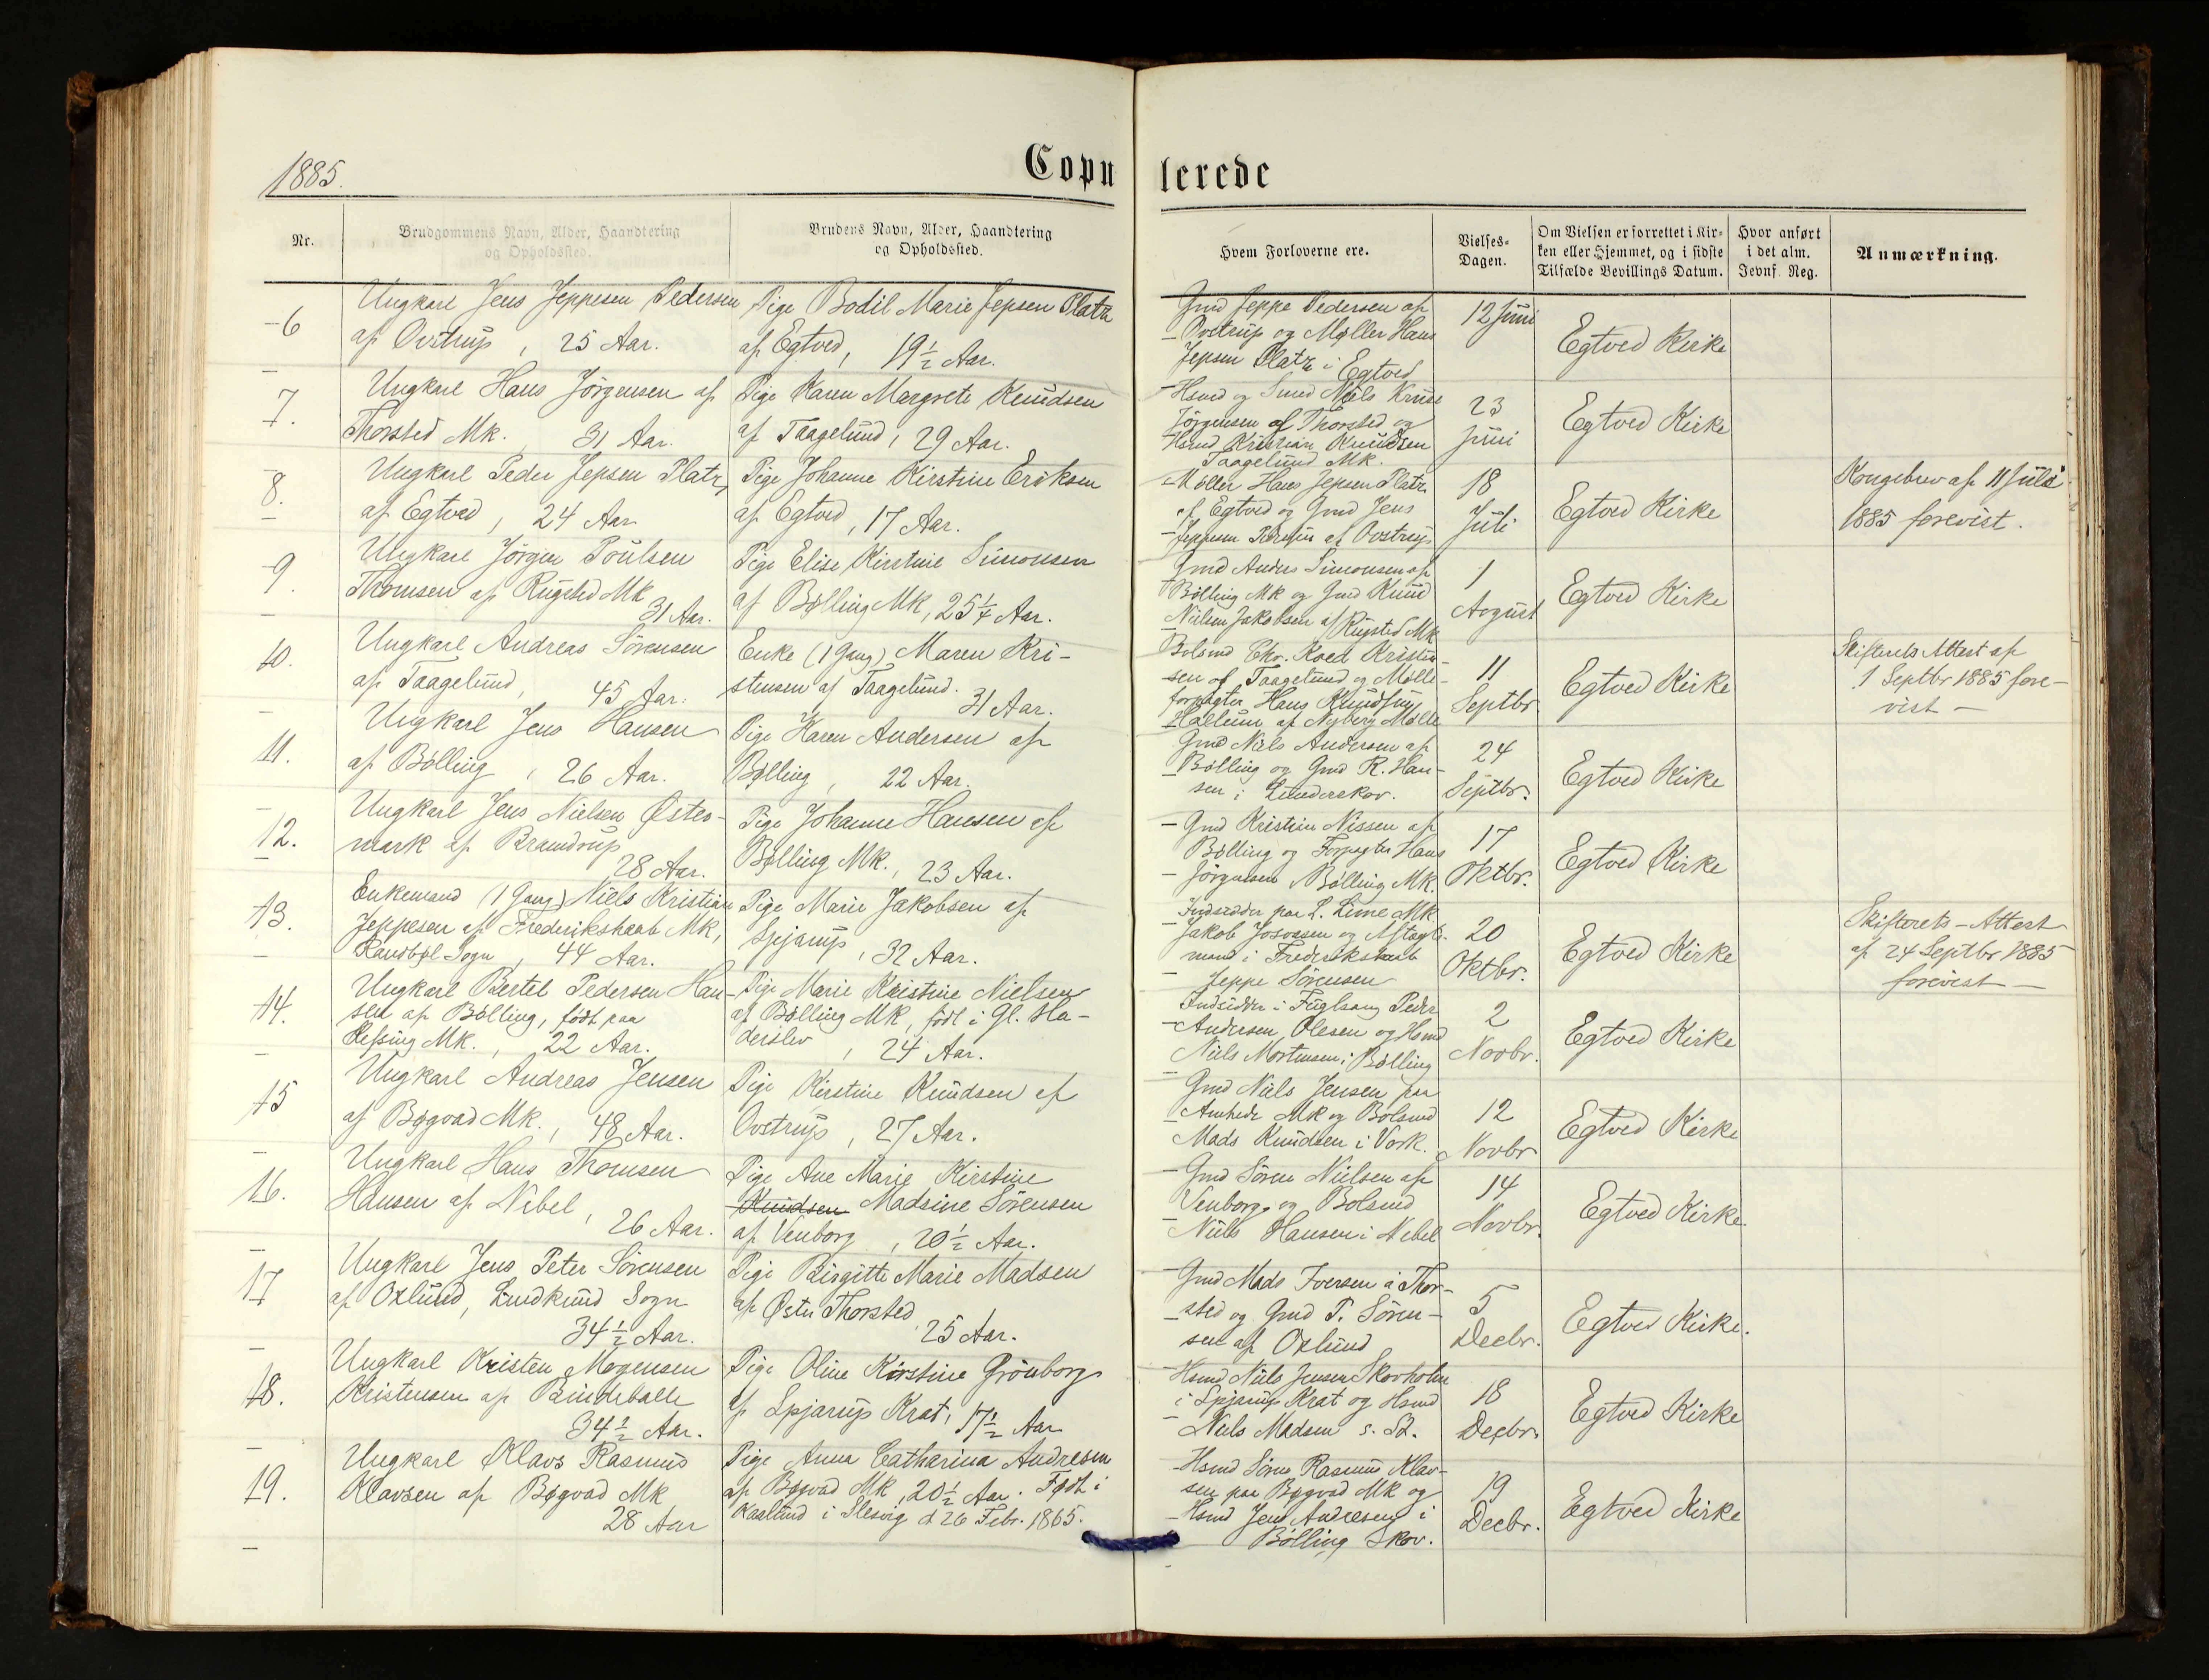 1885.
Copulerede
Nr.
Brudgommens Navn, Alder, Haandtering
og Opholdssted.
Brudens Navn, Alder, Haandtering
og Opholdssted.
Hvem Forloverne ere.
Vielses-
Dagen.
Om Vielsen er forrettet i Kir-
ken eller Hjemmet, og i sidste
Tilfælde Bevillings Datum.
Hvor anført
i det alm.
Jevnf. Reg.
Anmærkning.
6
Ungkarl Jens Jeppesen Pedersen
af Ovstrup, 25 Aar.
Pige Bodil Marie Jepsen Platz
af Egtved, 19½ Aar.
Gmd Jeppe Pedersen af
Ovstrup og Møller Hans
Jepsen Platz i Egtved
12 Juni
Egtved Kirke
7.
Ungkarl Hans Jörgensen af
Thorsted Mk. 31 Aar.
Pige Karen Margrete Knudsen
af Taagelund, 29 Aar.
Hsmd og Smed Niels Kruse
Jörgensen af Thorsted og
Hsmd Kristian Knudsen
Taagelund Mk.
23
Juni
Egtved Kirke
8.
Ungkarl Peder Jepsen Platz,
af Egtved, 24 Aar
Pige Johanne Kirstine Eriksen
af Egtved, 17 Aar.
Møller Hans Jepsen Platz
af Egtved og Gmd Jens
Jeppesen Pedersen af Ovstrup
18
Juli
Egtved Kirke
Kongebrev af 11 Juli
1885 forevist.
9.
Ungkarl Jörgen Poulsen
Thomsen af Rugsted Mk
31 Aar.
Pige Elise Kirstine Simonsen
af Bölling Mk, 25¼ Aar.
Gmd Anders Simonsen af
Bölling Mk og Gmd Knud
Nielsen Jakobsen af Rugsted Mk
1
August
Egtved Kirke
10.
Ungkarl Andreas Sörensen
af Taagelund, 45 Aar.
Enke (1 Gang) Maren Kri-
stensen af Taagelund.
31 Aar.
Bolsmd Chr. Koed Kristen-
sen af Taagelund og Mølle-
forpagter Hans Knudsen
Hallum af Nyberg Mølle
11
Septbr
Egtved Kirke
Skifterets Attest af
1 Septbr 1885 fore-
vist —
11.
Ungkarl Jens Hansen
af Bölling, 26 Aar.
Pige Karen Andersen af
Bølling, 22 Aar.
Gmd Niels Andersen af
Bölling og Gmd R. Han-
sen i Lunderskov.
24
Septbr.
Egtved Kirke
12.
Ungkarl Jens Nielsen Øster-
mark af Bramdrup
28 Aar.
Pige Johanne Hansen af
Bølling Mk., 23 Aar.
Gmd Kristian Nissen af
Bölling og Forpagter Hans
Jörgensen Bölling Mk.
17
Oktbr.
Egtved Kirke
13.
Enkemand (1 Gang) Niels Kristian
Jeppesen af Frederikshaab Mk,
Randbøl Sogn, 44 Aar.
Pige Marie Jakobsen af
Spjarup, 32 Aar.
Indsidder paa L. Lime Mk
Jakob og Aftægts-
mand i Frederikshaab
Jeppe Sörensen
20
Oktbr.
Egtved Kirke
Skifterets-Attest
af 24 Septbr 1885
forevist —
14.
Ungkarl Bertel Pedersen Han-
sen af Bölling, födt paa
Mk., 22 Aar.
Pige Marie Kristine Nielsen
af Bølling Mk, födt i Gl. Ha-
derslev, 24 Aar.
Indsidder i Fuglsang Peder
Andersen Olesen og Hsmd
Niels Mortensen i Bölling
2
Novbr.
Egtved Kirke
15
Ungkarl Andreas Jensen
af Bøgvad Mk., 48 Aar.
Pige Kirstine Knudsen af
Ovstrup, 27 Aar.
Gmd Niels Jensen paa
Amhede Mk og Bolsmd
Mads Knudsen i Vork.
12
Novbr
Egtved Kirke
16.
Ungkarl Hans Thomsen
Hansen af Nebel,
26 Aar.
Pige Ane Marie Kirstine
Knudsen Madsine Sörensen
af Venborg, 20½ Aar.
Gmd Sören Nielsen af
Venborg og Bolsmd
Niels Hansen i Nebel
14
Novbr.
Egtved Kirke.
17
Ungkarl Jens Peter Sörensen
af Oxlund, Lindknud Sogn
34½ Aar.
Pige Birgitte Marie Madsen
af Øster Thorsted,
25 Aar.
Gmd Mads Iversen i Thor-
sted og Gmd P. Sören-
sen af Oxlund
5
Decbr.
Egtved Kirke.
18.
Ungkarl Kristen Mogensen
Kristensen af Bindeballe
34½ Aar.
Pige Oline Kirstine Grönborg
af Spjarup Krat, 17½ Aar
Hsmd Niels Jensen Skovholm
i Spjarup Krat og Hsmd
Niels Madsen s. St.
18
Decbr.
Egtved Kirke
19.
Ungkarl Klavs Rasmus
Klavsen af Bøgvad Mk
28 Aar
Pige Anna Catharina Andresen
af Bøgvad Mk, 20½ Aar. Født i
Kaslund i Slesvig d. 26 Febr. 1865.
Hsmd Sören Rasmus Klav-
sen paa Bøgvad Mk og
Hsmd Jens Andresen i
Bölling Skov.
19
Decbr.
Egtved Kirke